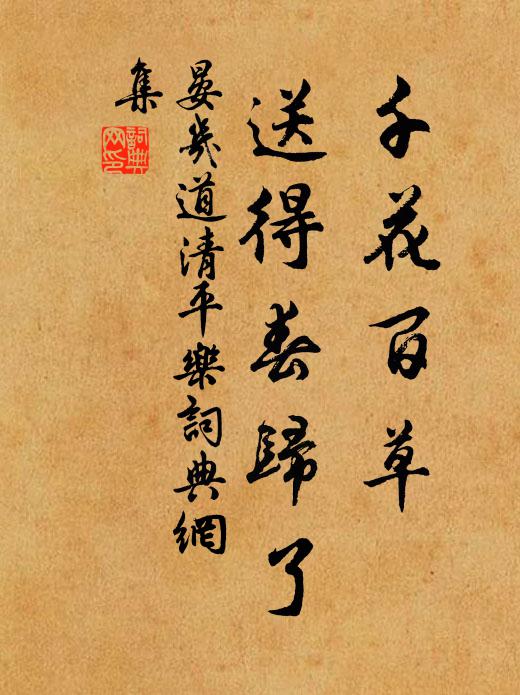 千花百草
送得春歸了
晏幾道清平樂詞典網
集
詞典网印